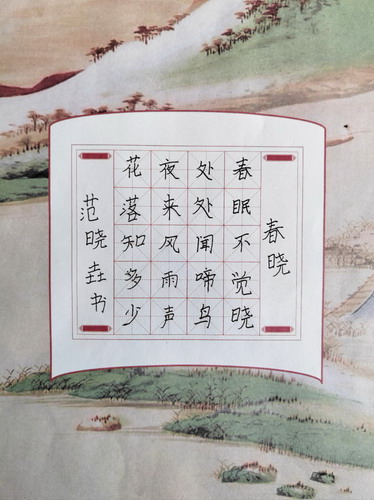 春晓
春眠不觉晓
处处闻啼鸟
夜来风雨声
花落知多少
范晓垚书